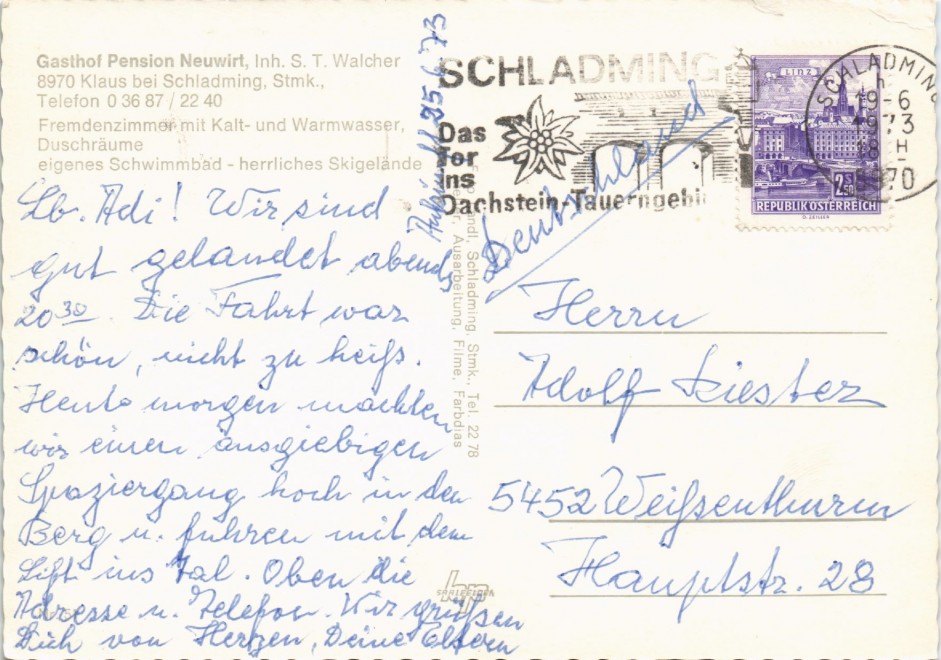 Gasthof Pension Neuwirt, Inh. S. T. Walcher
8970 Klaus bei Schladming, Stmk.,
Telefon 0 36 87 / 22 40
Fremdenzimmer mit Kalt- und Warmwasser,
Duschräume
eigenes Schwimmbad - herrliches Skigelände
Lb. Adi! Wir sind
gut gelandet abends
20³⁰. Die Fahrt war
schön, nicht zu heiß.
Heute morgen machten
wir einen ausgiebigen
Spaziergang hoch in den
Berg u. fuhren mit dem
Lift ins Tal. Oben die
Adresse u. Telefon. Wir grüßen
Dich von Herzen, Deine Eltern
73
Schladming, Stmk., Tel. 22 78
Ausarbeitung, Filme, Farbdias
SCHLADMING
Das
Tor
ins
Dachstein-Tauerngebi
Deutschland
LINZ
2 S 50
REPUBLIK ÖSTERREICH
SCHLADMING
19-6
1973
18 H
8970
Herrn
Adolf Kiester
5452 Weißenthurm
Hauptstr. 28